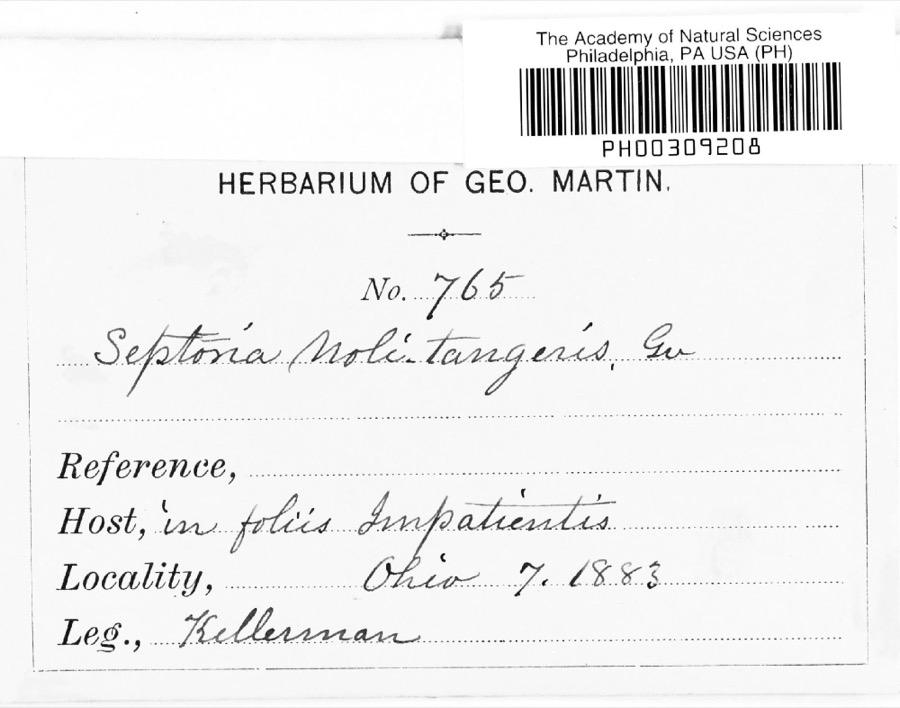 The Academy of Natural Sciences
Philadelphia, PA USA (PH)
PH00309208
HERBARIUM OF GEO. MARTIN.
No. 765
Septoria Noli-tangeris, Gv
Reference,
Host, in foliis Impatientis
Locality, Ohio 7. 1883
Leg., Kellerman